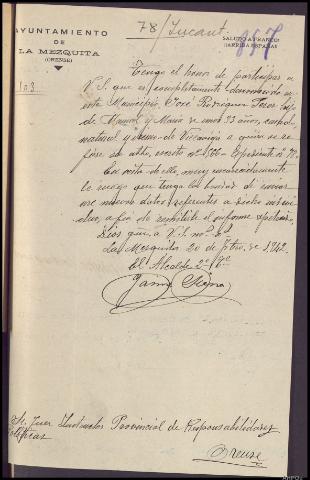 78/Incaut.
957
AYUNTAMIENTO
DE
LA MEZQUITA
(ORENSE)
SALUDO A FRANCO
¡ARRIBA ESPAÑA!
103
Tengo el honor de participar a
V.S. que es completamente desconocido en
este Municipio, José Rodriguez
de Manuel y Maria de unos 33 años,
natural y vecino de a quien se re-
fiere su atto. escrito nº Expediente nº 78.
En vista de ello, muy encarecidamente
le ruego que tenga la bondad de enviar
me nuevos datos referentes a dicho indivi-
duo, a fin de remitirle el informe
que a V.S.
La Mezquita 20 de de 1.942.
El Alcalde
Jaime
Sr. Juez Instructor Provincial de Responsabilidades
Políticas
Orense